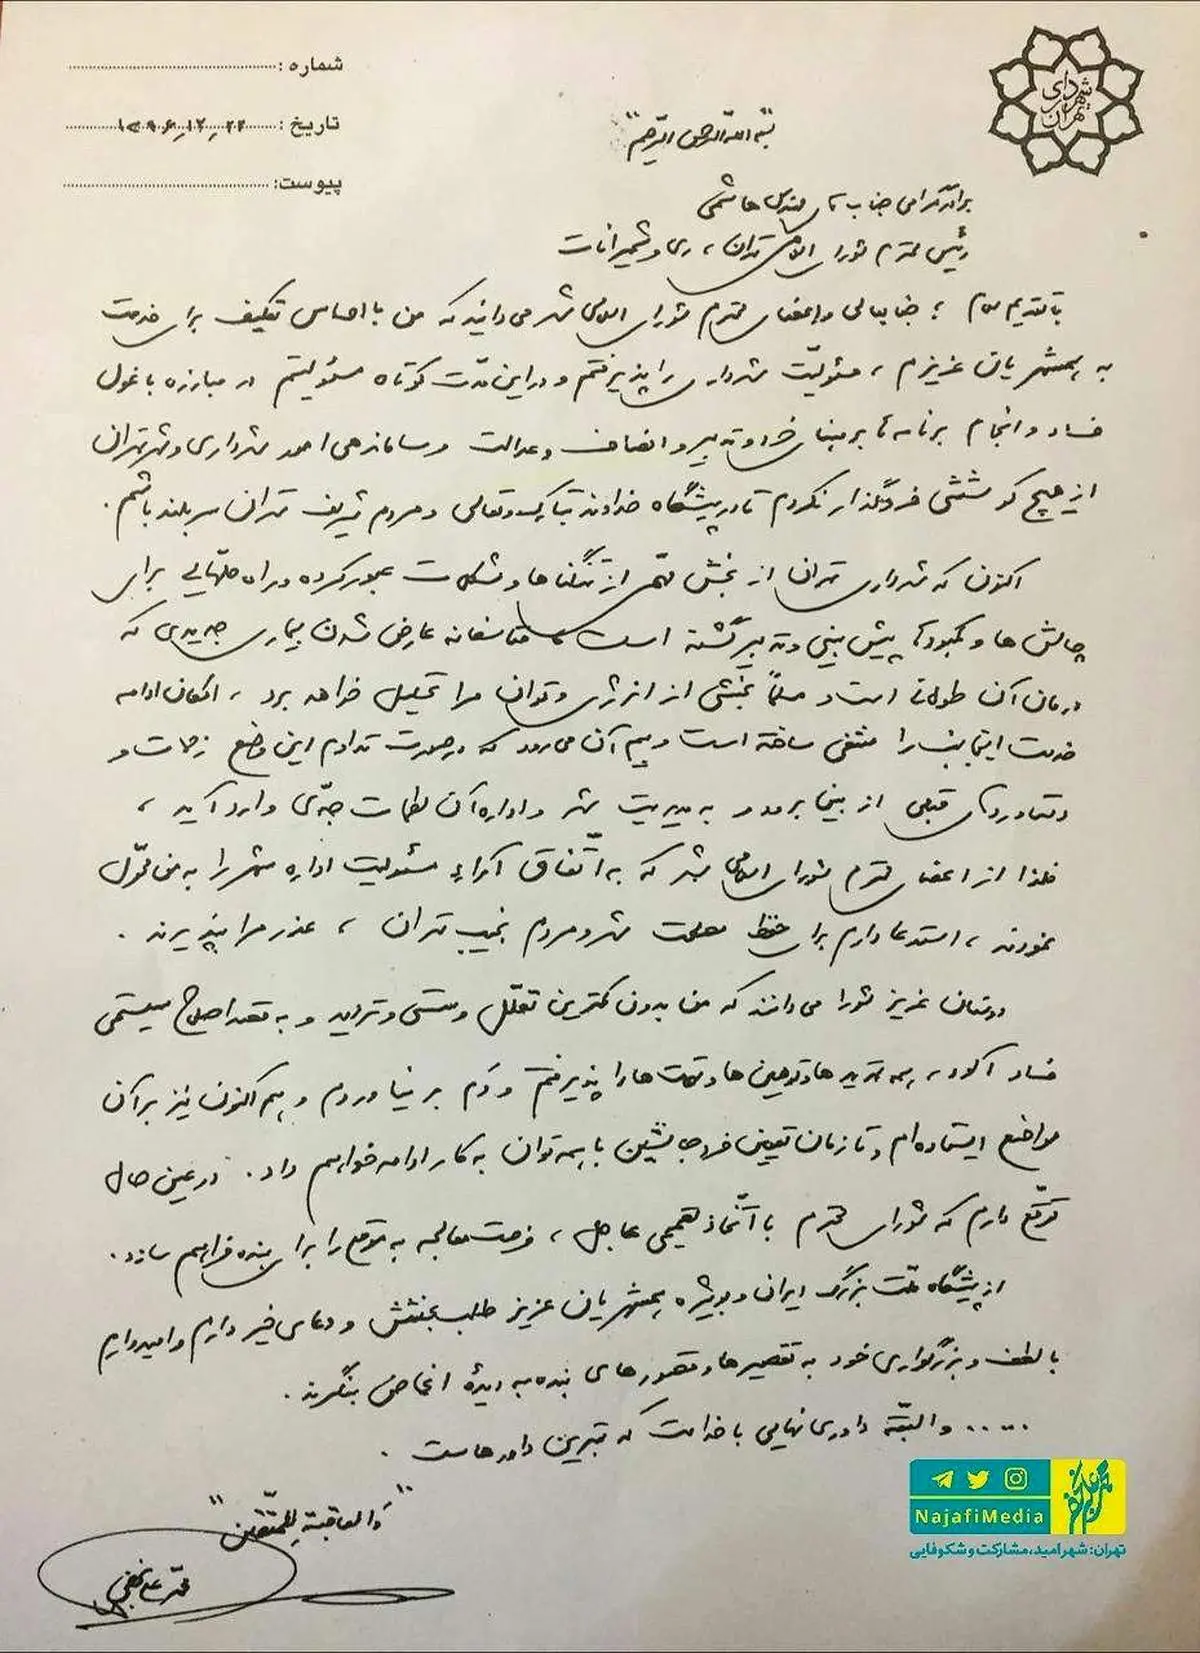 شهرداری تهران
شماره :
تاریخ : ۱۳۹۶٫۱۲٫۲۲
پیوست:
"بسم الله الرحمن الرحیم"
برادر گرامی جناب آقای مهندس هاشمی
رئیس محترم شورای اسلامی تهران، ری و شمیرانات
با تقدیم سلام ؛ جنابعالی و اعضای محترم شورای اسلامی شهر می‌دانید که من با احساس تکلیف برای خدمت
به همشهریان عزیزم ، مسئولیت شهرداری را پذیرفتم و در این مدّت کوتاه مسئولیتم در مبارزه با غول
فساد و انجام برنامه‌ها بر مبنای خرد و تدبیر و انصاف و عدالت و ساماندهی امور شهرداری و شهر تهران
از هیچ کوششی فروگذار نکردم تا در پیشگاه خداوند تبارک و تعالی و مردم شریف تهران سربلند باشم .
اکنون که شهرداری تهران از بخش مهّمی از تنگناها و مشکلات عبور کرده و راه حلّهایی برای
چالش ها و کمبودها پیش بینی و تدبیر گشته است متأسفانه عارض شدن بیماری جدیدی که
درمان آن طولانی است و مسلماً بخشی از انرژی و توان مرا تحلیل خواهد برد ، امکان ادامه
خدمت اینجانب را منتفی ساخته است و بیم آن می‌رود که در صورت تداوم این وضع زحمات و
دستاوردهای قبلی از بین برود و به مدیریت شهر و اداره آن لطمات جدّی وارد آید ،
فلذا از اعضای محترم شورای اسلامی شهر که به اتّفاق آراء مسئولیت اداره شهر را به من محوّل
نمودند ، استدعا دارم برای حفظ مصلحت شهر و مردم نجیب تهران ، عذر مرا بپذیرند .
دوستان عزیز شورا می‌دانند که من بدون کمترین تعلّل و سستی و تردید و به قصد اصلاح سیستمی
فساد آلود ، همه تهدیدها و توهین ها و تهمت ها را پذیرفتم و دَم بر نیاوردم و هم اکنون نیز بر آن
مواضع ایستاده‌ام و تا زمان تعیین فرد جانشین با همه توان به کار ادامه خواهم داد . در عین حال
توقّع دارم که شورای محترم با اتّخاذ تصمیمی عاجل ، فرصت معالجه به موقع را برای بنده فراهم سازد .
از پیشگاه ملّت بزرگ ایران و بویژه همشهریان عزیز طلب بخشش و دعای خیر دارم و امیدوارم
با لطف و بزرگواری خود به تقصیرها و قصورهای بنده به دیدۀ اغماض بنگرند .
..... و البتّه داوری نهایی با خداست که بهترین داورهاست .
"وَ العاقبة لِلمتّقین"
محمد علی نجفی
NajafiMedia
تهران: شهر امید، مشارکت و شکوفایی